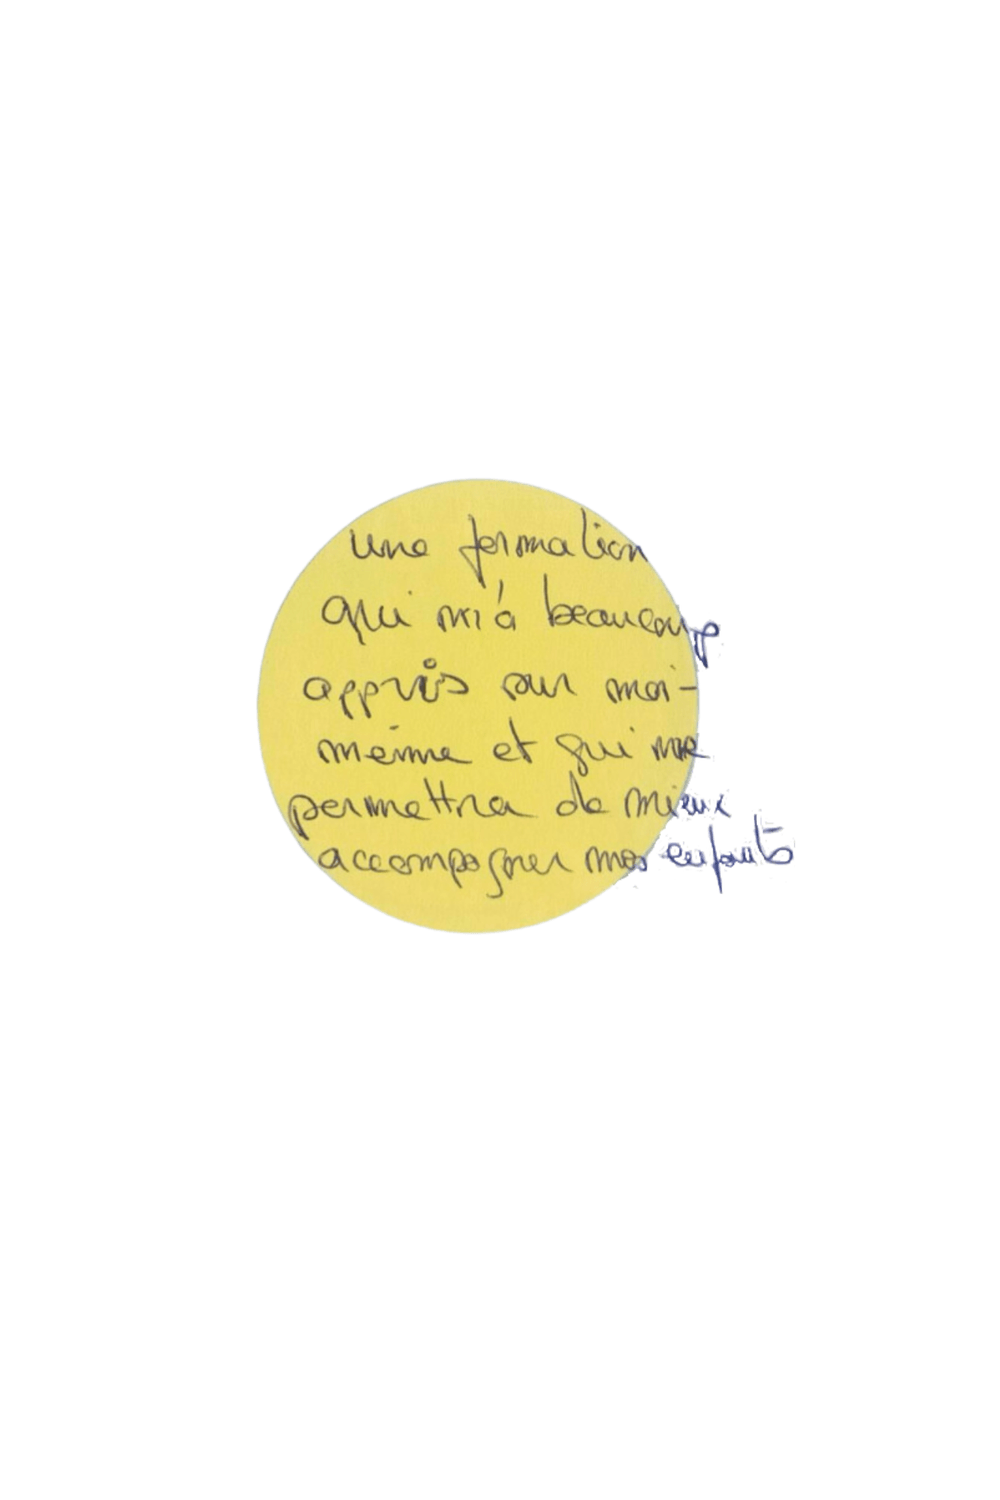 une formation
qui m'a beaucoup
appris sur moi-
même et qui me
permettra de mieux
accompagner mes enfants